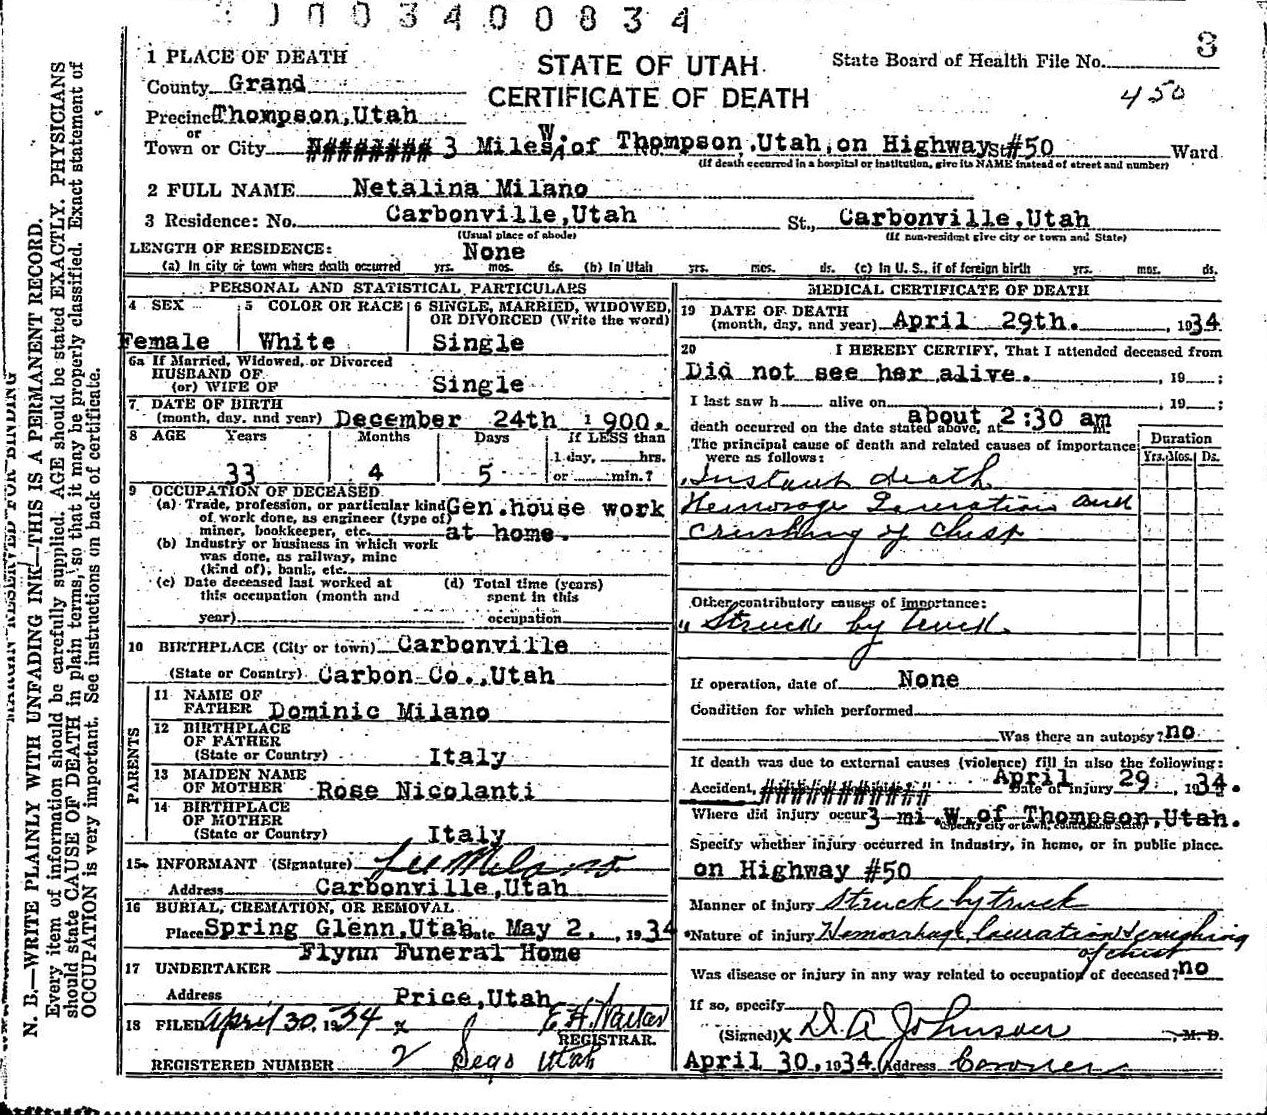 0003400834
3
1 PLACE OF DEATH
STATE OF UTAH
State Board of Health File No.
County Grand
CERTIFICATE OF DEATH
450
Precinct Thompson,Utah
or
Town or City ######## 3 Miles W. of Thompson,Utah,on Highway #50 St. Ward
(If death occurred in a hospital or institution, give its NAME instead of street and number)
2 FULL NAME Netalina Milano
3 Residence: No. Carbonville,Utah St., Carbonville,Utah
(Usual place of abode) (If non-resident give city or town and State)
LENGTH OF RESIDENCE: None
(a) In city or town where death occurred yrs. mos. ds. (b) In Utah yrs. mos. ds. (c) In U. S., if of foreign birth yrs. mos. ds.
PERSONAL AND STATISTICAL PARTICULARS
4 SEX 5 COLOR OR RACE 6 SINGLE, MARRIED, WIDOWED,
OR DIVORCED (Write the word)
Female White Single
6a If Married, Widowed, or Divorced
HUSBAND OF
(or) WIFE OF Single
7 DATE OF BIRTH
(month, day, and year) December 24th 1900.
8 AGE Years Months Days If LESS than
1 day, hrs.
33 4 5 or min.?
9 OCCUPATION OF DECEASED
(a) Trade, profession, or particular kind Gen.house work
of work done, as engineer (type of)
miner, bookkeeper, etc. at home.
(b) Industry or business in which work
was done, as railway, mine
(kind of), bank, etc.
(c) Date deceased last worked at (d) Total time (years)
this occupation (month and spent in this
year) occupation
10 BIRTHPLACE (City or town) Carbonville
(State or Country) Carbon Co.,Utah
PARENTS
11 NAME OF
FATHER Dominic Milano
12 BIRTHPLACE
OF FATHER
(State or Country) Italy
13 MAIDEN NAME
OF MOTHER Rose Nicolanti
14 BIRTHPLACE
OF MOTHER
(State or Country) Italy
15 INFORMANT (Signature) Lee Milano
Address Carbonville,Utah
16 BURIAL, CREMATION, OR REMOVAL
Place Spring Glenn,Utah Date May 2. , 1934
Flynn Funeral Home
17 UNDERTAKER
Address Price,Utah
18 FILED April 30, 1934 x E H Walker
REGISTRAR.
REGISTERED NUMBER 2 Sego Utah
MEDICAL CERTIFICATE OF DEATH
19 DATE OF DEATH
(month, day, and year) April 29th. , 1934
20 I HEREBY CERTIFY, That I attended deceased from
Did not see her alive. , 19 ;
I last saw h alive on , 19 ;
death occurred on the date stated above, at about 2:30 am m.
The principal cause of death and related causes of importance
were as follows:
Duration
Yrs. Mos. Ds.
Instant death
Hemorage Laceration and
crushing of chest
Other contributory causes of importance:
" Struck by truck.
If operation, date of None
Condition for which performed
Was there an autopsy? no
If death was due to external causes (violence) fill in also the following:
Accident, ########### Date of injury April 29 , 1934.
Where did injury occur 3 mi.W.of Thompson,Utah.
(Specify city or town, county and State)
Specify whether injury occurred in industry, in home, or in public place.
on Highway #50
Manner of injury Struck by truck
Nature of injury Hemorrhage, laceration & crushing
of chest
Was disease or injury in any way related to occupation of deceased? no
If so, specify
(Signed) x D. A Johnson , M. D.
April 30, 1934. (Address Coroner
MARGIN RESERVED FOR BINDING
N. B.—WRITE PLAINLY WITH UNFADING INK—THIS IS A PERMANENT RECORD.
Every item of information should be carefully supplied. AGE should be stated EXACTLY. PHYSICIANS
should state CAUSE OF DEATH in plain terms, so that it may be properly classified. Exact statement of
OCCUPATION is very important. See instructions on back of certificate.